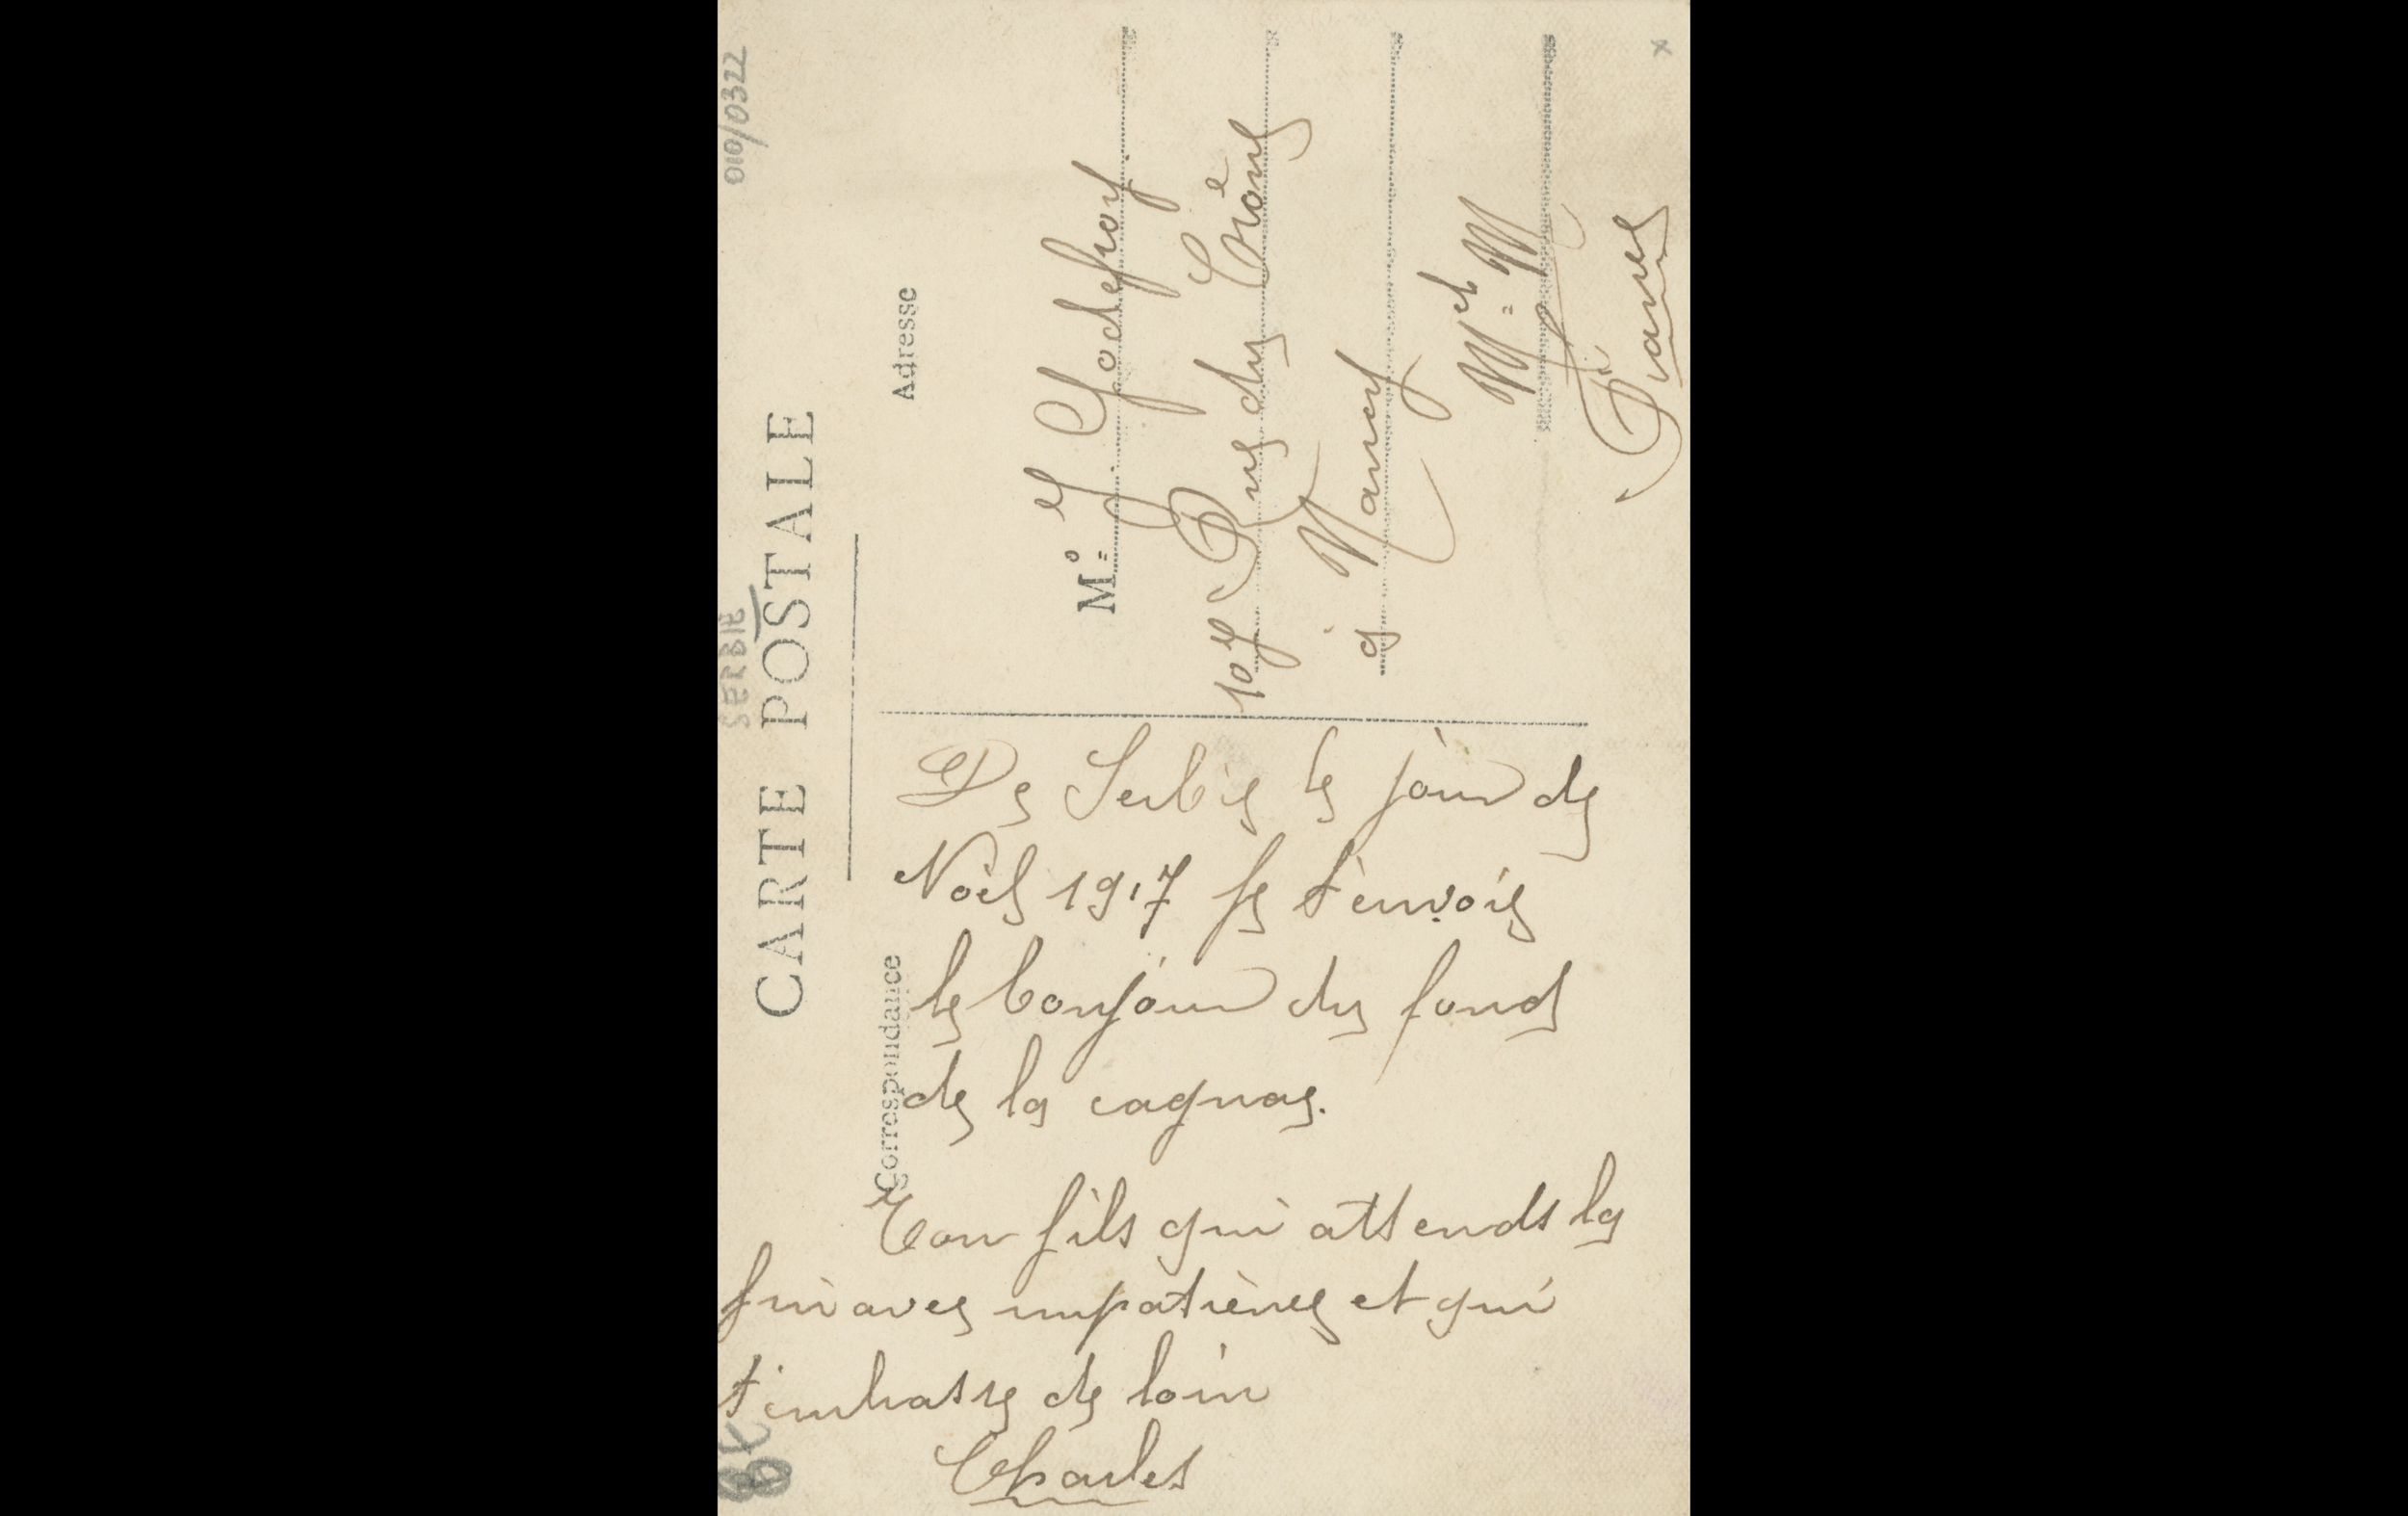 010/0322
SERBIE
CARTE POSTALE
Correspondance
Adresse
De Serbie le jour de
Noël 1917 Je t'envoie
le bonjour du fond
de la cagna.
Ton fils qui attends la
fin avec impatience et qui
t'embrasse de loin
Charles
Mo= J. Godefroy
Rue du
à Nancy
Mt=
France
x